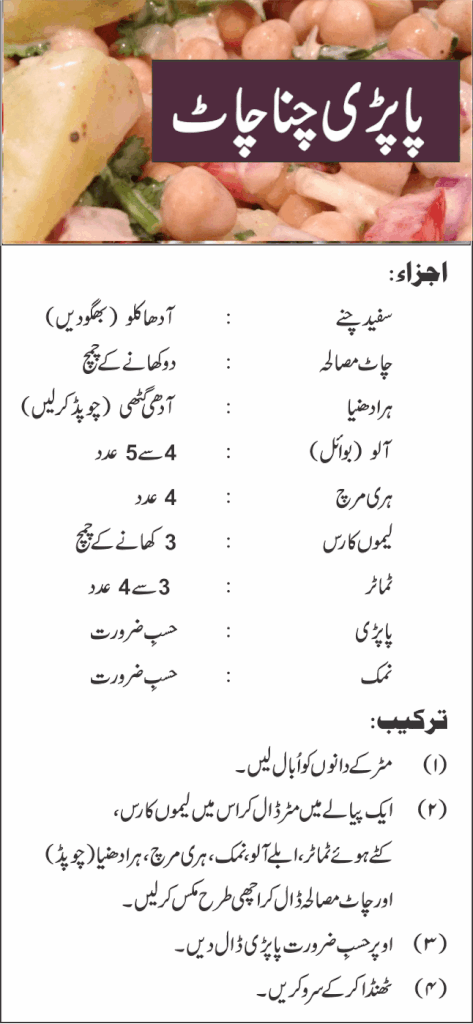 پاپڑی چنا چاٹ
اجزاء:
سفید چنے : آدھا کلو (بھگودیں)
چاٹ مصالحہ : دو کھانے کے چمچ
ہرا دھنیا : آدھی گٹھی (چوپڈ کرلیں)
آلو (بوائل) : 4 سے 5 عدد
ہری مرچ : 4 عدد
لیموں کا رس : 3 کھانے کے چمچ
ٹماٹر : 3 سے 4 عدد
پاپڑی : حسبِ ضرورت
نمک : حسبِ ضرورت
ترکیب:
(۱) مٹر کے دانوں کو اُبال لیں۔
(۲) ایک پیالے میں مٹر ڈال کر اس میں لیموں کا رس،
کٹے ہوئے ٹماٹر، ابلے آلو، نمک، ہری مرچ، ہرا دھنیا (چوپڈ)
اور چاٹ مصالحہ ڈال کر اچھی طرح مکس کرلیں۔
(۳) اوپر حسبِ ضرورت پاپڑی ڈال دیں۔
(۴) ٹھنڈا کر کے سرو کریں۔